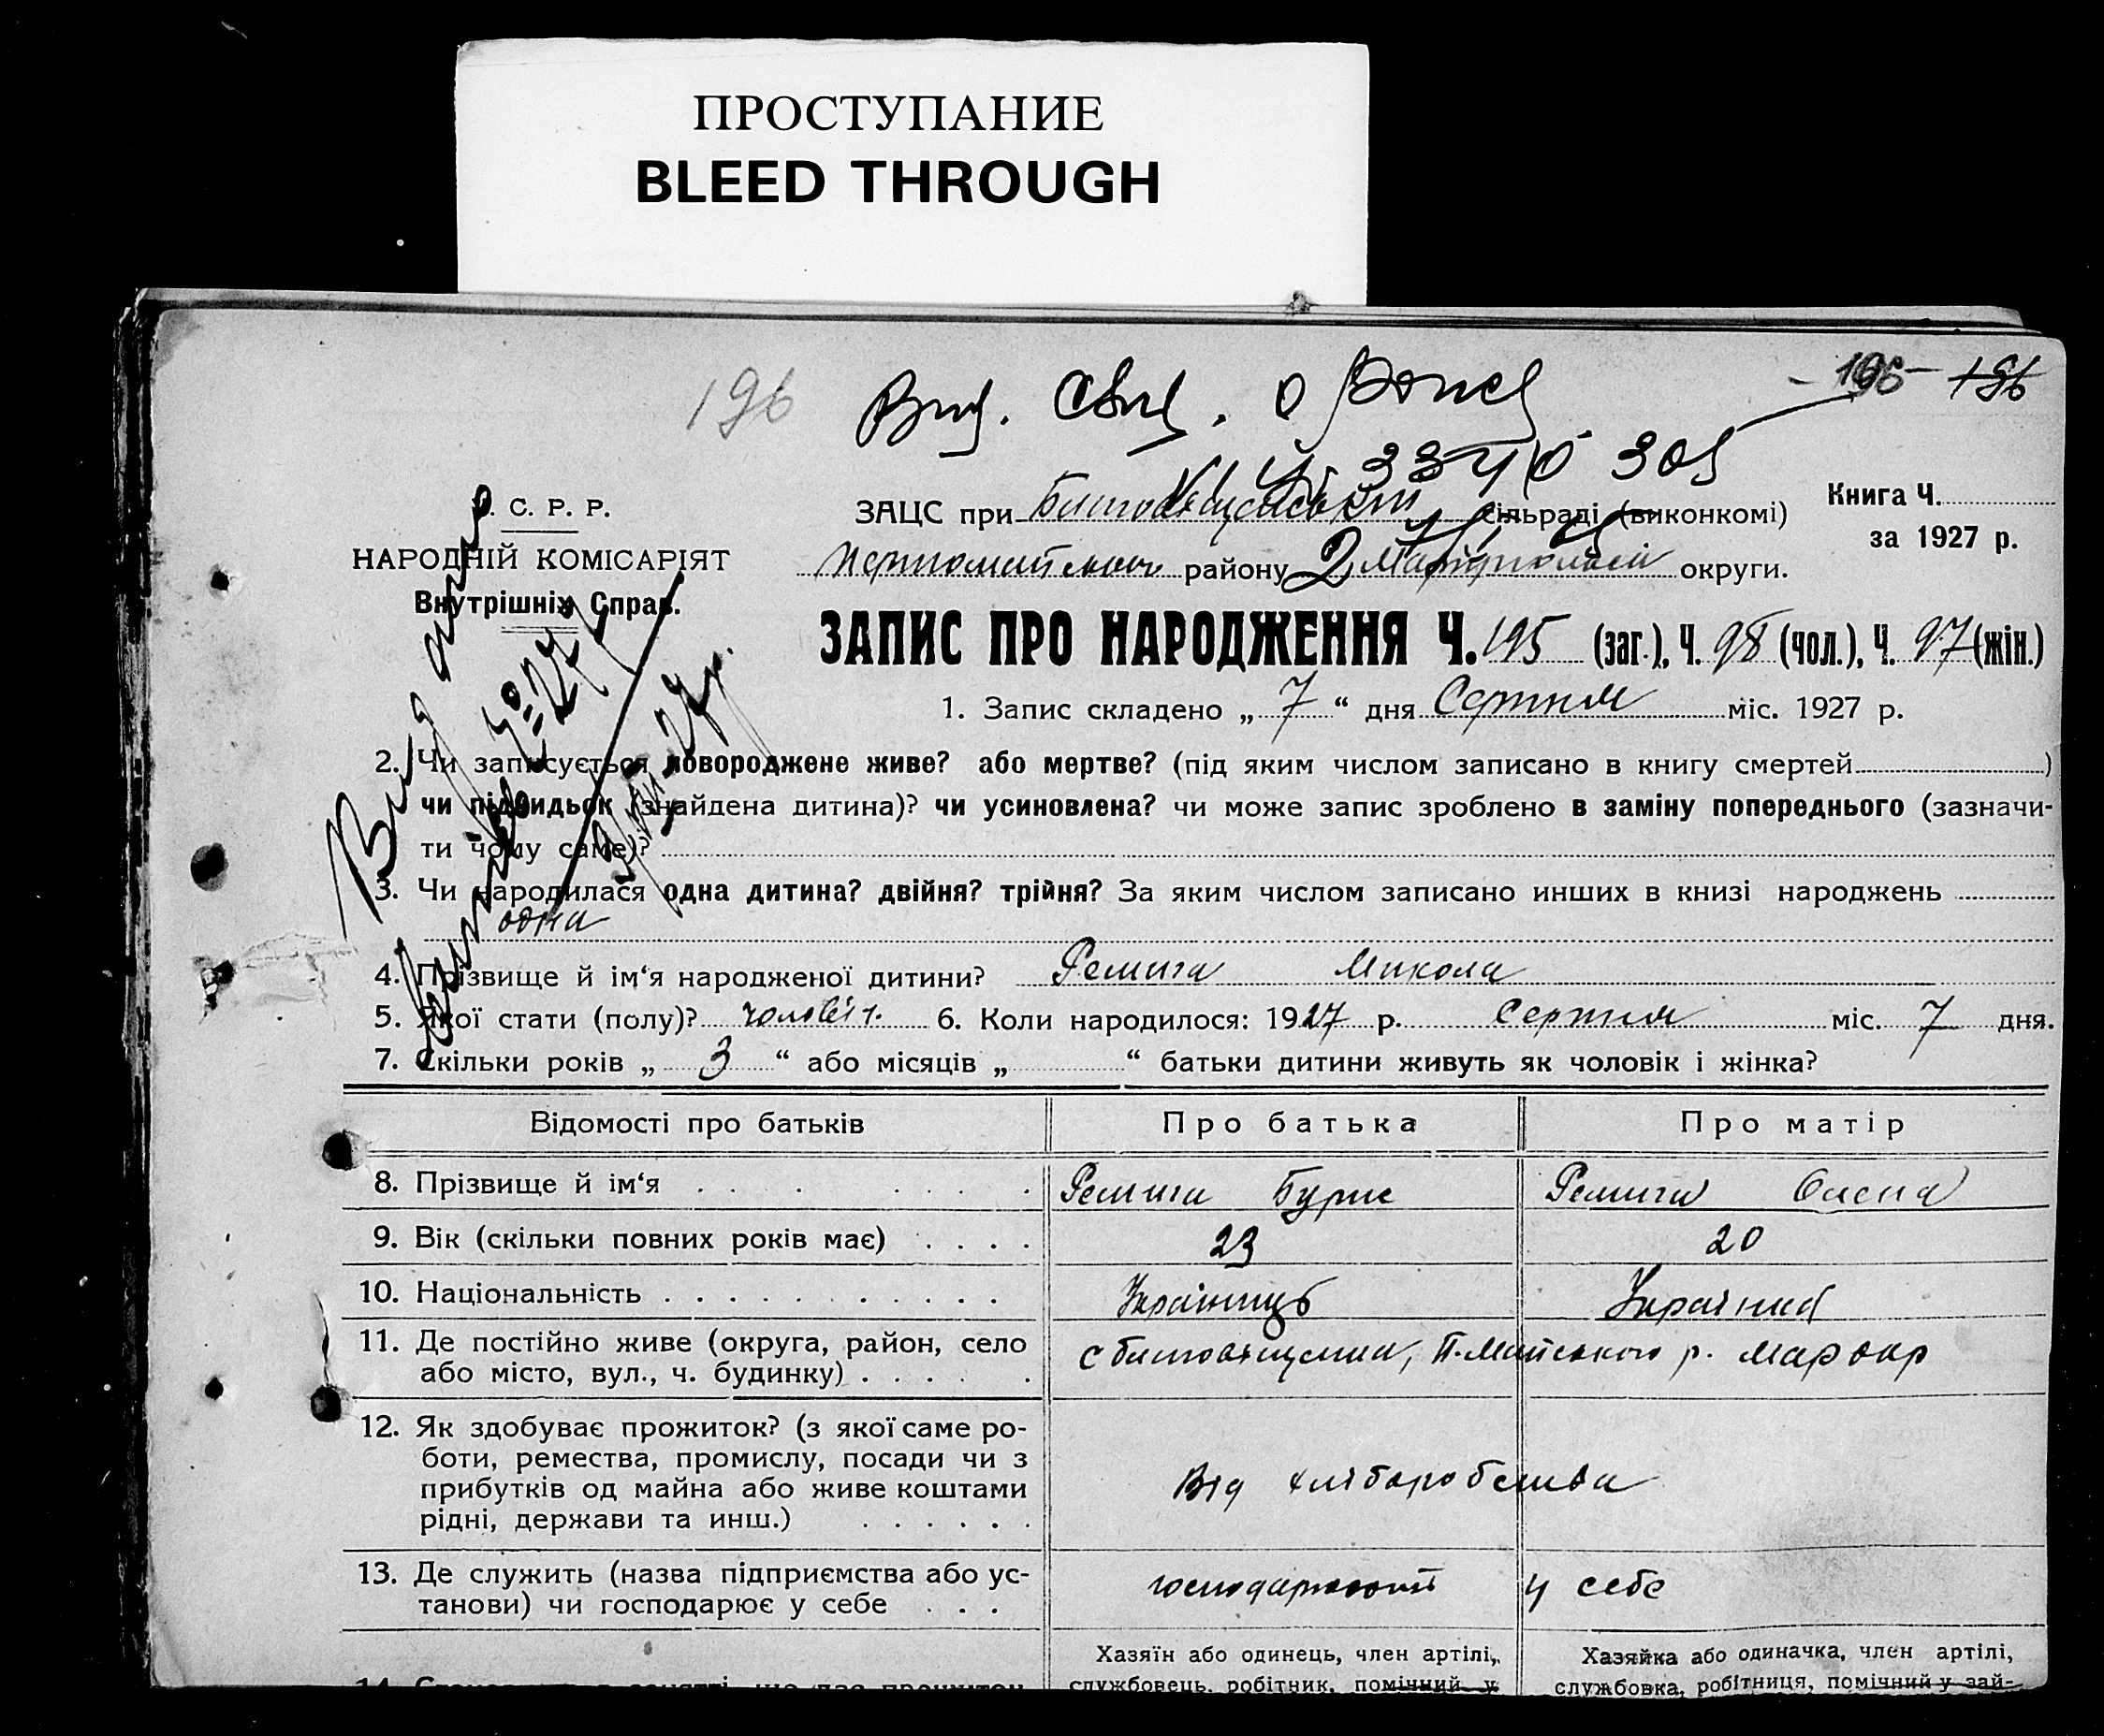 ПРОСТУПАНИЕ
BLEED THROUGH
196
- 196 - 196
С. Р. Р.
НАРОДНІЙ КОМІСАРІЯТ
Внутрішніх Справ.
ЗАЦС при сільраді (виконкомі)
району округи.
Книга Ч.
за 1927 р.
ЗАПИС ПРО НАРОДЖЕННЯ Ч. 195 (заг.), Ч. 98 (чол.), Ч. 97 (жін.)
1. Запис складено „ 7 “ дня Серпня міс. 1927 р.
2. Чи записується новороджене живе? або мертве? (під яким числом записано в книгу смертей )
чи підкидьок (знайдена дитина)? чи усиновлена? чи може запис зроблено в заміну попереднього (зазначи-
ти чому саме)?
3. Чи народилася одна дитина? двійня? трійня? За яким числом записано инших в книзі народжень
одна
4. Прізвище й ім‘я народженої дитини? Ремига Микола
5. Якої стати (полу)? чоловіч. 6. Коли народилося: 1927 р. Серпня міс. 7 дня.
7. Скільки років „ 3 “ або місяців „ “ батьки дитини живуть як чоловік і жінка?
Відомості про батьків Про батька Про матір
8. Прізвище й ім‘я Ремига Бурис Ремига Олена
9. Вік (скільки повних років має) 23 20
10. Національність Українець Українка
11. Де постійно живе (округа, район, село
або місто, вул., ч. будинку) П.Майського р. Мар окр
12. Як здобуває прожиток? (з якої саме ро-
боти, ремества, промислу, посади чи з
прибутків од майна або живе коштами
рідні, держави та инш.) Від хліборобства
13. Де служить (назва підприємства або ус-
танови) чи господарює у себе у себе
Хазяїн або одинець, член артілі,
службовець, робітник, помічний у
Хазяйка або одиначка, член артілі,
службовка, робітниця, помічний у зай-